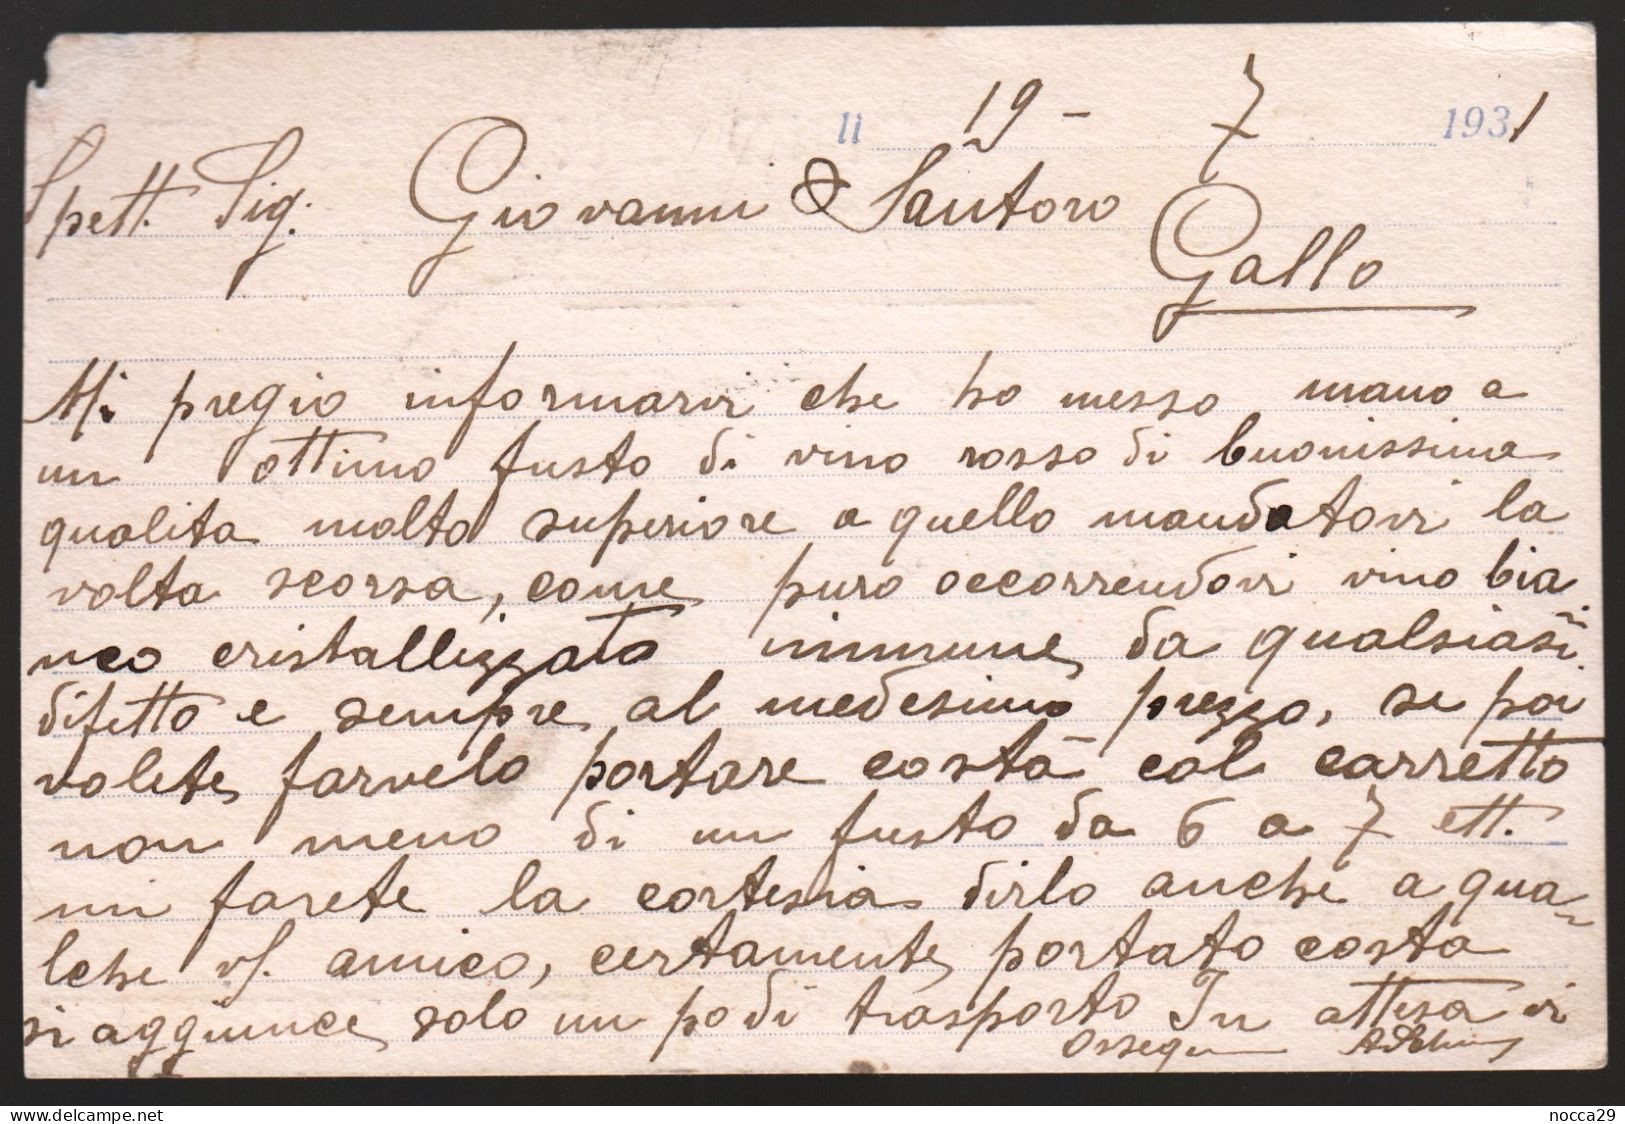 li 19 - 7 1931
Spett. Sig. Giovanni & Santoro
Gallo
Mi pregio informarvi che ho messo mano a
un ottimo fusto di vino rosso di buonissima
qualita molto superiore a quello mandatovi la
volta scorsa, come puro occorrendovi vino bia
nco cristallizzato immune da qualsiasi
difetto e sempre al medesimo prezzo, se poi
volete farvelo portare costà col carretto
non meno di un fusto da 6 a 7 ett.
mi farete la cortesia dirlo anche a qua-
lche vs. amico, certamente portato costa
si aggiunce solo un po di trasporto In attesa vi
Ossequi
delcampe.net
nocca29